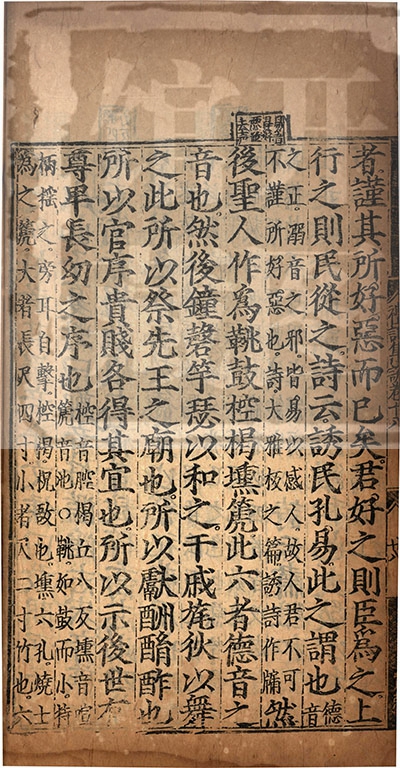 者謹其所好惡而已矣君好之則臣為之上
行之則民從之詩云誘民孔易此之謂也德音
之正溺音之邪皆易以感人故人君不可
不謹所好惡也詩大雅板之篇誘詩作牖然
後聖人作為鞉鼓椌楬壎篪此六者德音之
音也然後鐘磬竽瑟以和之干戚旄狄以舞
之此所以祭先王之廟也所以獻酬酳酢也
所以官序貴賤各得其宜也所以示後世有
尊卑長幼之序也椌音腔楬丘八反壎音喧
篪音池○鞉如鼓而小持
柄搖之旁耳自擊椌楬柷敔也壎六孔燒土
為之篪大者長尺四寸小者尺二寸竹也六